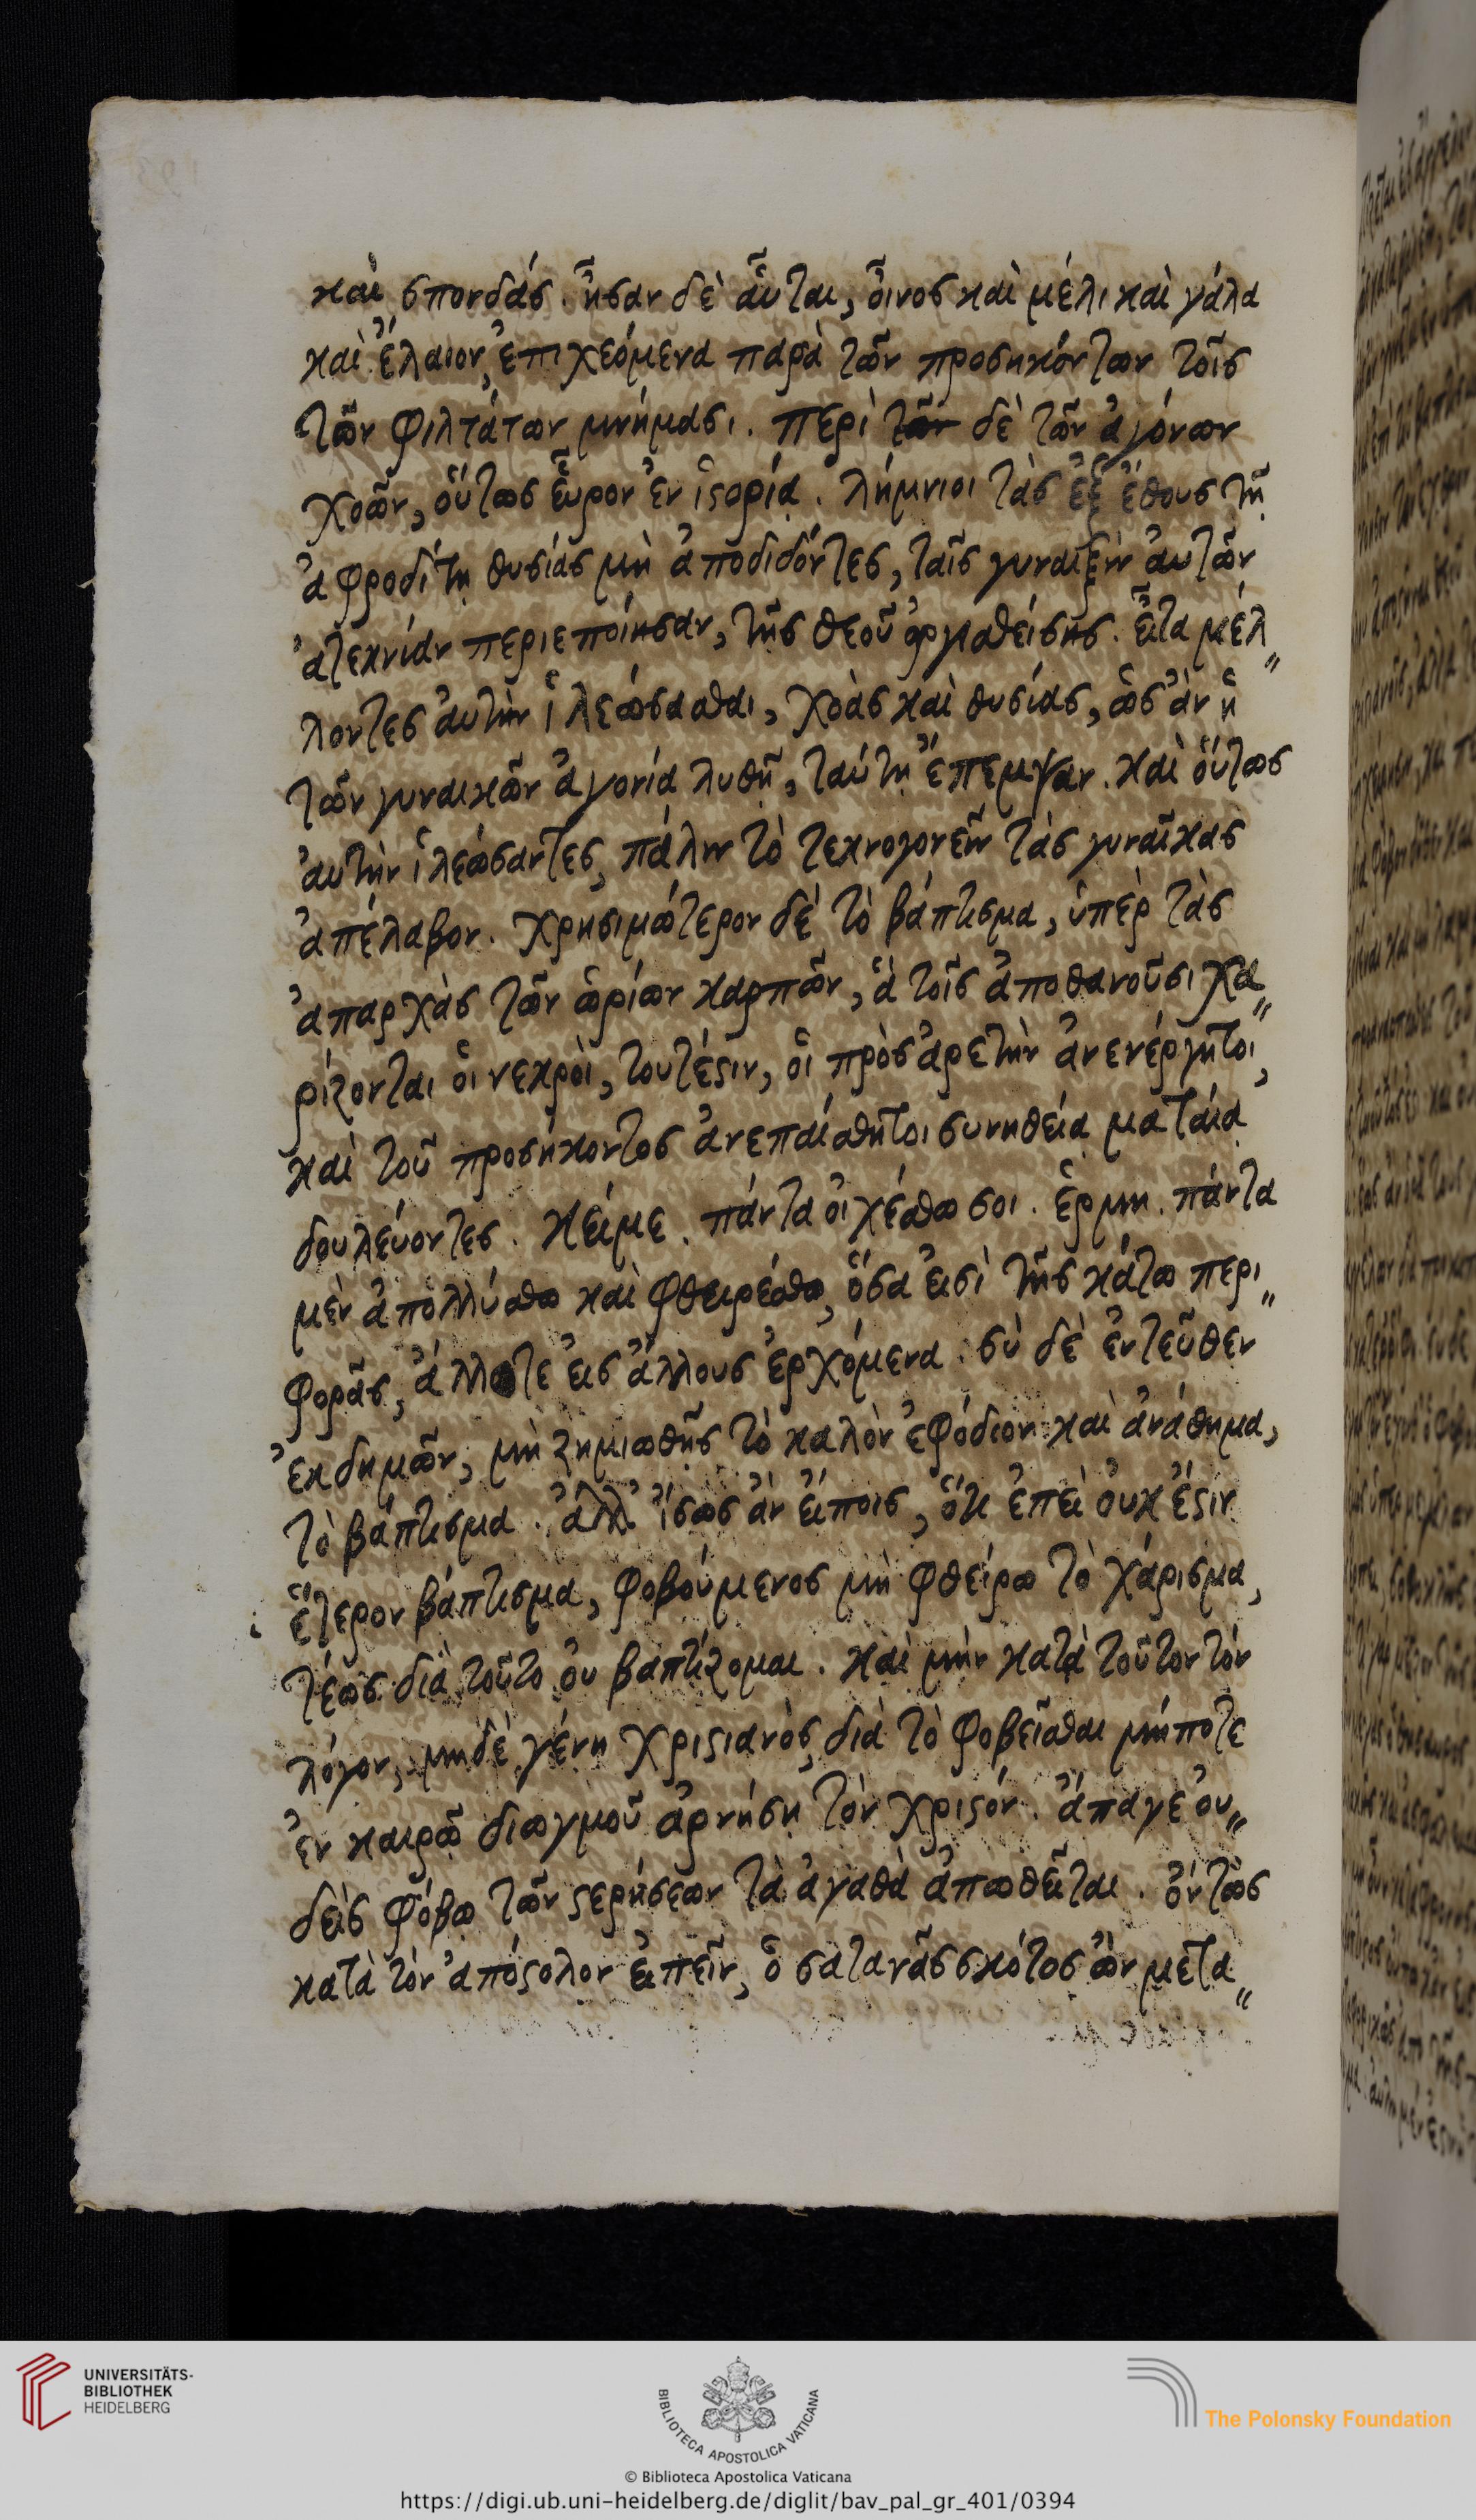 καὶ σπονδάς. ἦσαν δὲ αὗται, οἶνος καὶ μέλι καὶ γάλα
καὶ ἔλαιον, ἐπιχεόμενα παρὰ τῶν προσηκόντων τοῖς
τῶν φιλτάτων μνήμασι. περὶ τῶν δὲ τῶν ἀγόνων
χοῶν, οὕτως εὗρον ἐν ἱστορίᾳ. λήμνιοι τὰς ἐξ ἔθους τῇ
ἀφροδίτῃ θυσίας μὴ ἀποδιδόντες, ταῖς γυναιξὶν αὐτῶν
ἀτεκνίαν περιεποίησαν, τῆς θεοῦ ὀργισθείσης. εἶτα μέλ„
λοντες αὐτὴν ἱλεώσασθαι, χοὰς καὶ θυσίας, ὡς ἂν ἡ
τῶν γυναικῶν ἀγονία λυθῇ, ταύτῃ ἔπεμψαν. καὶ οὕτως
αὐτὴν ἱλεώσαντες, πάλιν τὸ τεκνογονεῖν τὰς γυναῖκας
ἀπέλαβον. χρησιμώτερον δὲ τὸ βάπτισμα, ὑπὲρ τὰς
ἀπαρχὰς τῶν ὡρίων καρπῶν, ἃ τοῖς ἀποθανοῦσι χα„
ρίζονται οἱ νεκροὶ, τουτέστιν, οἱ πρὸς ἀρετὴν ἀνενέργητοι,
καὶ τοῦ προσήκοντος ἀνεπαίσθητοι συνηθείᾳ ματαίᾳ
δουλεύοντες. κείμε. πάντα οἰχέσθω σοι. ἑρμη. πάντα
μὲν ἀπολλύσθω καὶ φθειρέσθω, ὅσα εἰσὶ τῆς κάτω περι„
φορᾶς, ἄλλοτε εἰς ἄλλους ἐρχόμενα. σὺ δὲ ἐντεῦθεν
ἐκδημῶν, μὴ ζημιωθῇς τὸ καλὸν ἐφόδιον καὶ ἀνάθημα,
τὸ βάπτισμα. ἀλλ' ἴσως ἂν εἴποις, ὅτι ἐπεὶ οὐκ ἔστιν
ἕτερον βάπτισμα, φοβούμενος μὴ φθείρω τὸ χάρισμα,
τέως διὰ τοῦτο οὐ βαπτίζομαι. καὶ μὴν κατὰ τοῦτον τὸν
λόγον, μηδὲ γένῃ χριστιανὸς, διὰ τὸ φοβεῖσθαι μήποτε
ἐν καιρῷ διωγμοῦ ἀρνήσῃ τὸν χριστόν. ἄπαγε οὐ„
δεὶς φόβω τῶν στερήσεων τὰ ἀγαθὰ ἀπωθεῖται. ὄντως
κατὰ τὸν ἀπόστολον εἰπεῖν, ὁ σατανᾶς σκότος ὢν μετα„
UNIVERSITÄTS-
BIBLIOTHEK
HEIDELBERG
BIBLIOTECA APOSTOLICA VATICANA
The Polonsky Foundation
© Biblioteca Apostolica Vaticana
https://digi.ub.uni-heidelberg.de/diglit/bav_pal_gr_401/0394